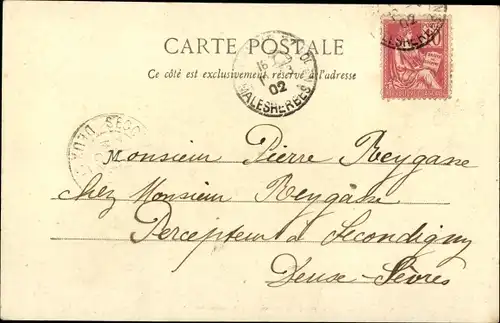 CARTE POSTALE
Ce côté est exclusivement réservé à l'adresse
16
02
MALESHERBES
02
MALESHERBES
Monsieur Pierre Reygasse
chez Monsieur Reygasse
Percepteur à Secondigny
Deuse-Sèvres